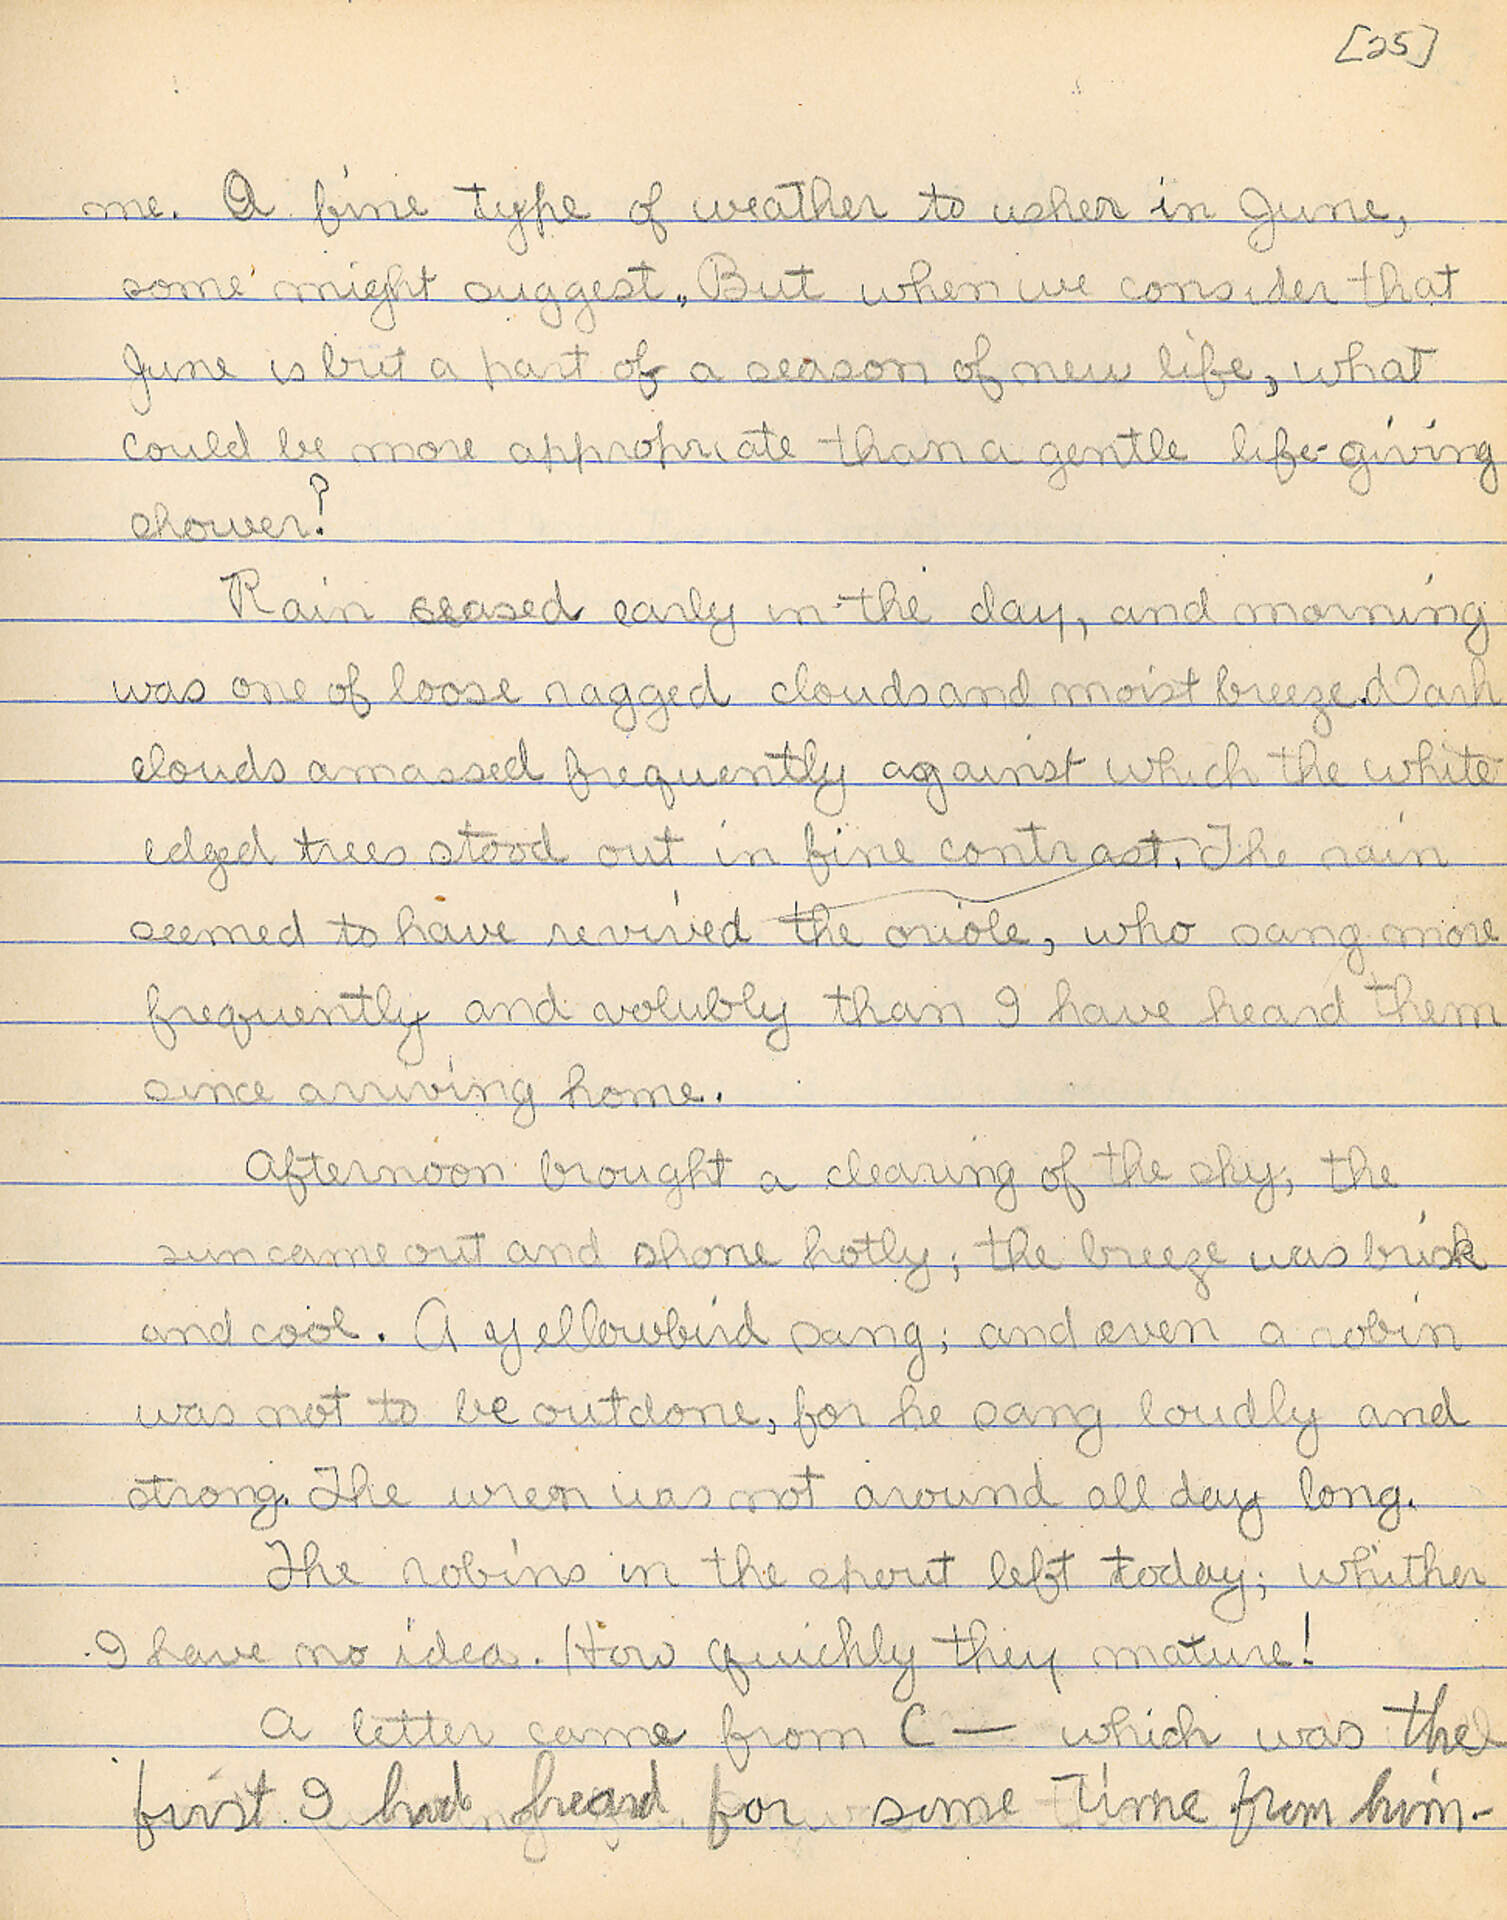 [25]
me. A fine type of weather to usher in June,
some might suggest. But when we consider that
June is but a part of a season of new life, what
could be more appropriate than a gentle life-giving
shower?
Rain ceased early in the day, and morning
was one of loose ragged clouds and moist breeze. Dark
clouds amassed frequently against which the white
edged trees stood out in fine contrast. The rain
seemed to have revived the oriole, who sang more
frequently and volubly than I have heard them
since arriving home.
Afternoon brought a clearing of the sky; the
sun came out and shone hotly; the breeze was brisk
and cool. A yellowbird sang; and even a robin
was not to be outdone, for he sang loudly and
strong. The wren was not around all day long.
The robins in the spout left today; whither
I have no idea. How quickly they mature!
A letter came from C — which was the
first I had heard for some time from him.-